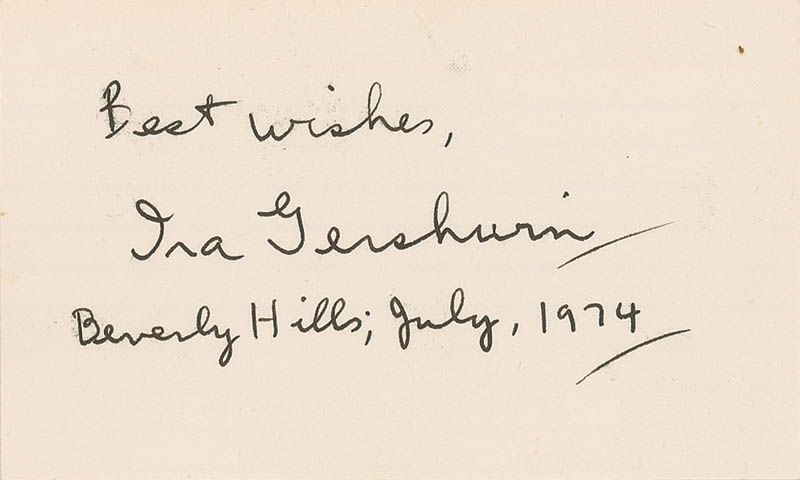 Best wishes,
Ira Gershwin
Beverly Hills; July, 1974